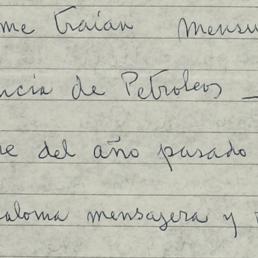 me traían mensu
ncia de Petroleos —
re del año pasado
aloma mensajera y